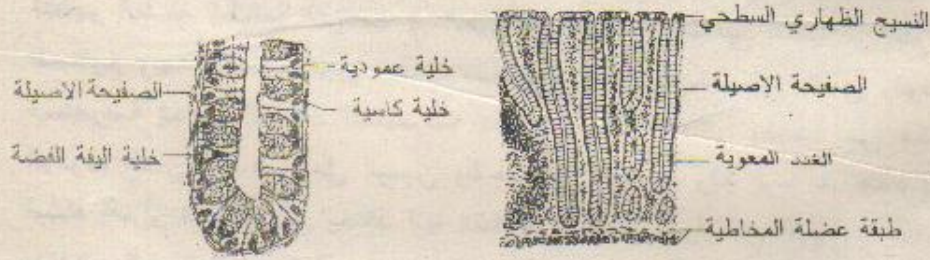 النسيج الظهاري السطحي
الصفيحة الاصيلة
الغدد المعوية
طبقة عضلة المخاطية
خلية عمودية
خلية كاسية
الصفيحة الاصيلة
خلية اليفة الفضة